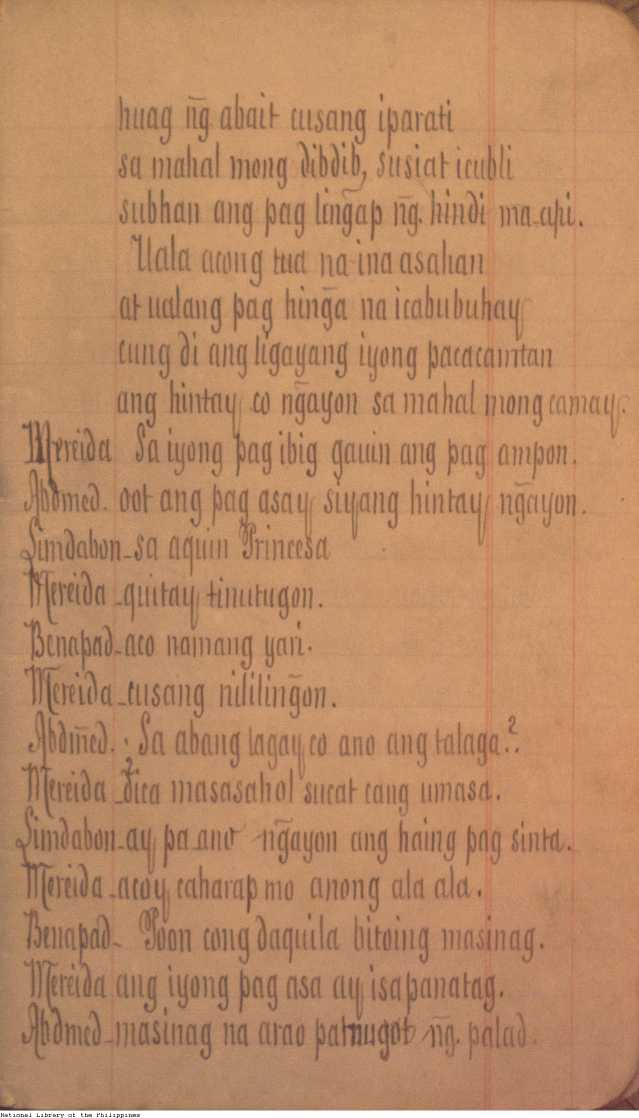 huag n̄g abait cusang iparati
sa mahal mong dibdib, susiat icubli
subhan ang pag lin̄gap n̄g. hindi ma-api.
Uala acong tua na ina asahan
at ualang pag hin̄ga na icabubuhay
cung di ang ligayang iyong pacacamtan
ang hintay co n̄gayon sa mahal mong camay.
Mereida Sa iyong pag ibig gauin ang pag ampon.
Abdmed. oot ang pag asay siyang hintay n̄gayon.
Limdabon - sa aquin Princesa
Mereida - quitay tinutugon.
Benapad - aco namang yari.
Mereida - cusang nililin̄gon.
Abdmed. Sa abang lagay co ano ang talaga?
Mereida - dica masasahol sucat cang umasa.
Limdabon - ay pa-ano n̄gayon ang haing pag sinta.
Mereida - acoy caharap mo anong ala ala.
Benapad - Poon cong daquila bitoing masinag.
Mereida ang iyong pag asa ay isapanatag.
Abdmed - masinag na arao patnugot n̄g. palad.
National Library of the Philippines